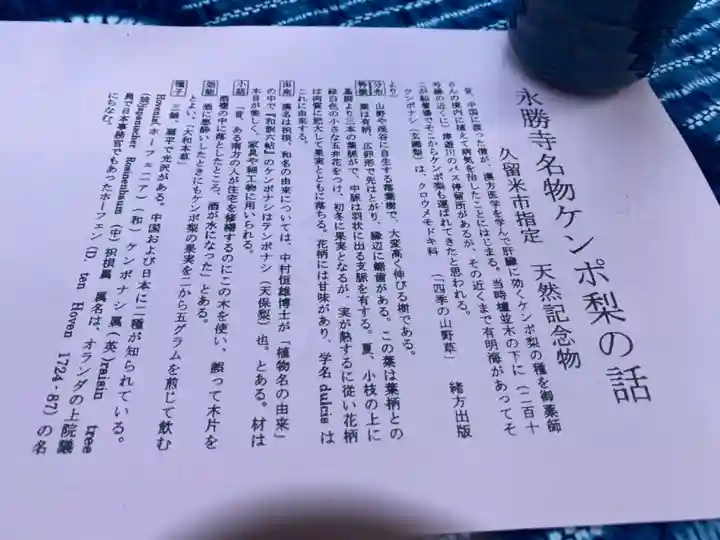 永勝寺名物ケンポ梨の話
久留米市指定 天然記念物
昔、中国に渡った僧が、漢方医学を学んで肝臓に効くケンポ梨の種を御薬師
さんの境内に植えて病気を治したことにはじまる。当時櫨並木の下に(二百十
号線の近くに)津遊川のバス停留所があるが、その近くまで有明海があってそ
こが船着場でそこからケンポ梨も運ばれてきたと思われる。
ケンポナシ(玄圃梨)は、クロウメモドキ科 (「四季の山野草」 緒方出版
より)
分布 山野や渓谷に自生する落葉樹で、大変高く伸びる樹である。
特徴 葉は有柄、広卵形で先はとがり、縁辺に鋸歯がある。この葉は葉柄との
基脚より三本の葉脈がで、中脈は羽状に出る支脈を有する。夏、小枝の上に
緑白色の小さな五弁花をつけ、初冬に果実となるが、実が熟するに従い花柄
は肉質に肥大して果実とともに落ちる。花柄には甘味があり、学名dulcisは
これに由来する。
由来 漢名は枳椇、和名の由来については、中村恒雄博士が「植物名の由来」
の中で『和訓六帖』のケンポナシはテンポナシ(天保梨)也。とある。材は
木目が美しく、家具や細工物に用いられる。
小話 「昔、ある南方の人が住宅を修繕するのにこの木を使い、誤って木片を
酒樽の中に落としたところ、酒が水になった」とある。
効能 酒に悪酔いしたときにもケンポ梨の果実を二から五グラムを煎じて飲む
とよい、「大和本草」
種子 三個、扁平で光沢がある。中国および日本に二種が知られている。
Hovenia(ホーフェニア)(和)ケンポナシ属(英)raisin tree
(独)japanischer Rosinenbaum(中)枳椇属 属名は、オランダの上院議
員で日本事務官でもあったホーフェン(D ten Hoven 1724-87)の名
にちなむ。